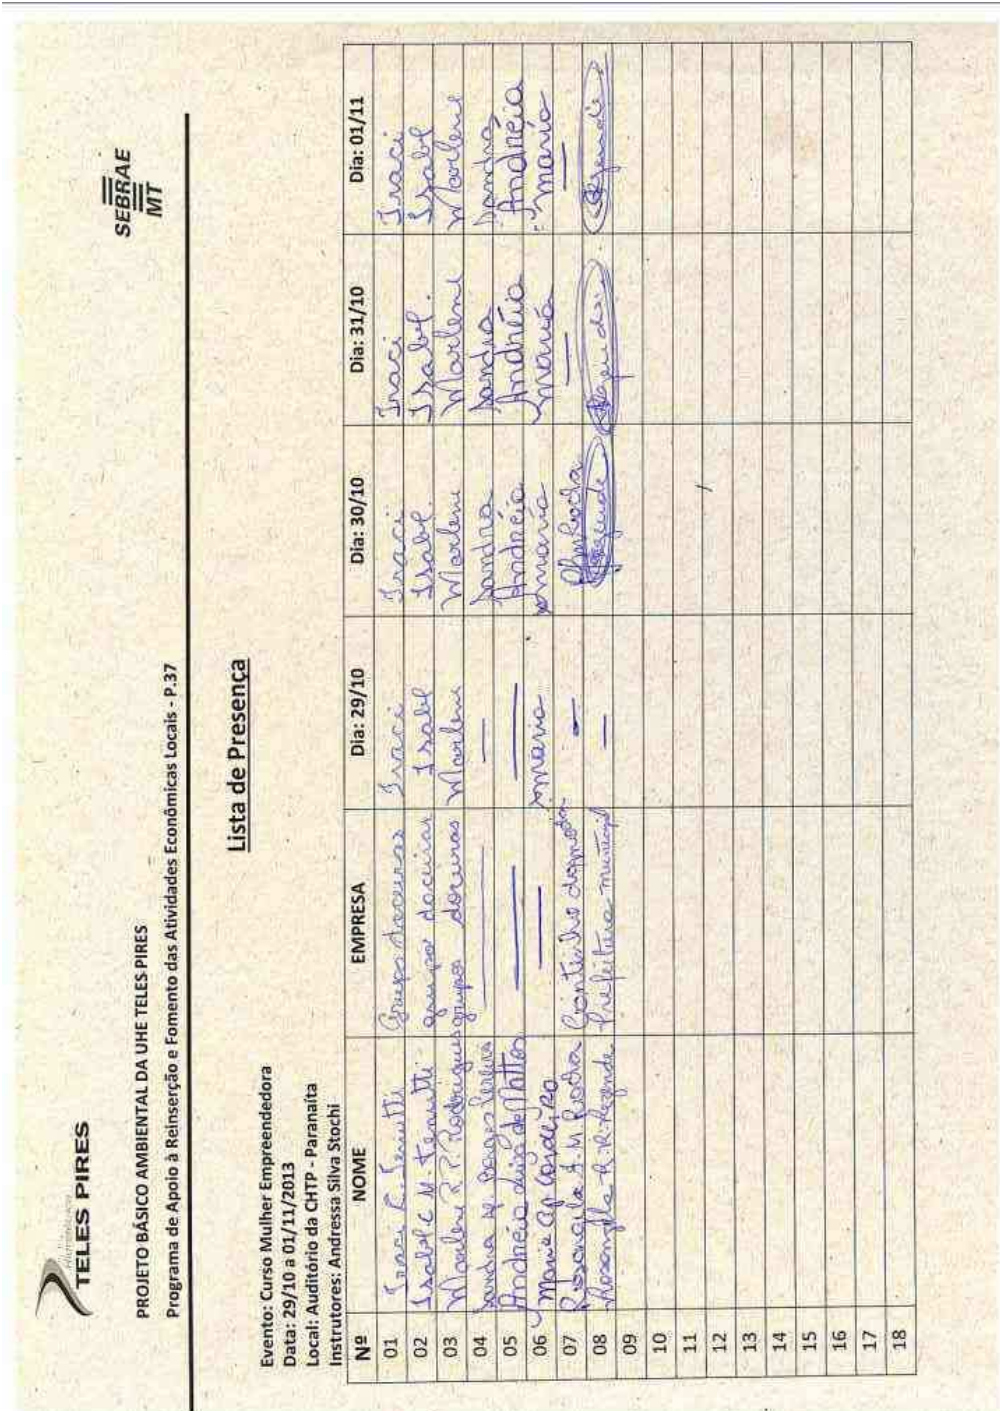 TELES PIRES
SEBRAE
MT
PROJETO BÁSICO AMBIENTAL DA UHE TELES PIRES
Programa de Apoio à Reinserção e Fomento das Atividades Econômicas Locais - P.37
Lista de Presença
Evento: Curso Mulher Empreendedora
Data: 29/10 a 01/11/2013
Local: Auditório da CHTP - Paranaíta
Instrutores: Andressa Silva Stochi
Nº NOME EMPRESA Dia: 29/10 Dia: 30/10 Dia: 31/10 Dia: 01/11
01 Iraci Grupo Iraci Iraci Iraci Iraci
02 Isabel C M. grupo Isabel Isabel Isabel. Isabel
03 Marlene R. P. Rodrigues grupo Marlene Marlene Marlene Marlene
04 Sandra Borges Pereira — — Sandra Sandra Sandra
05 Andréia de Mattos — — Andréia Andréia Andréia
06 Maria Ap Cordeiro — maria maria maria maria
07 Rosangela A. M. Rocha — Rocha — —
08 Rosangela R. R. Rezende Prefeitura municipal —
09
10
11
12
13
14
15
16
17
18